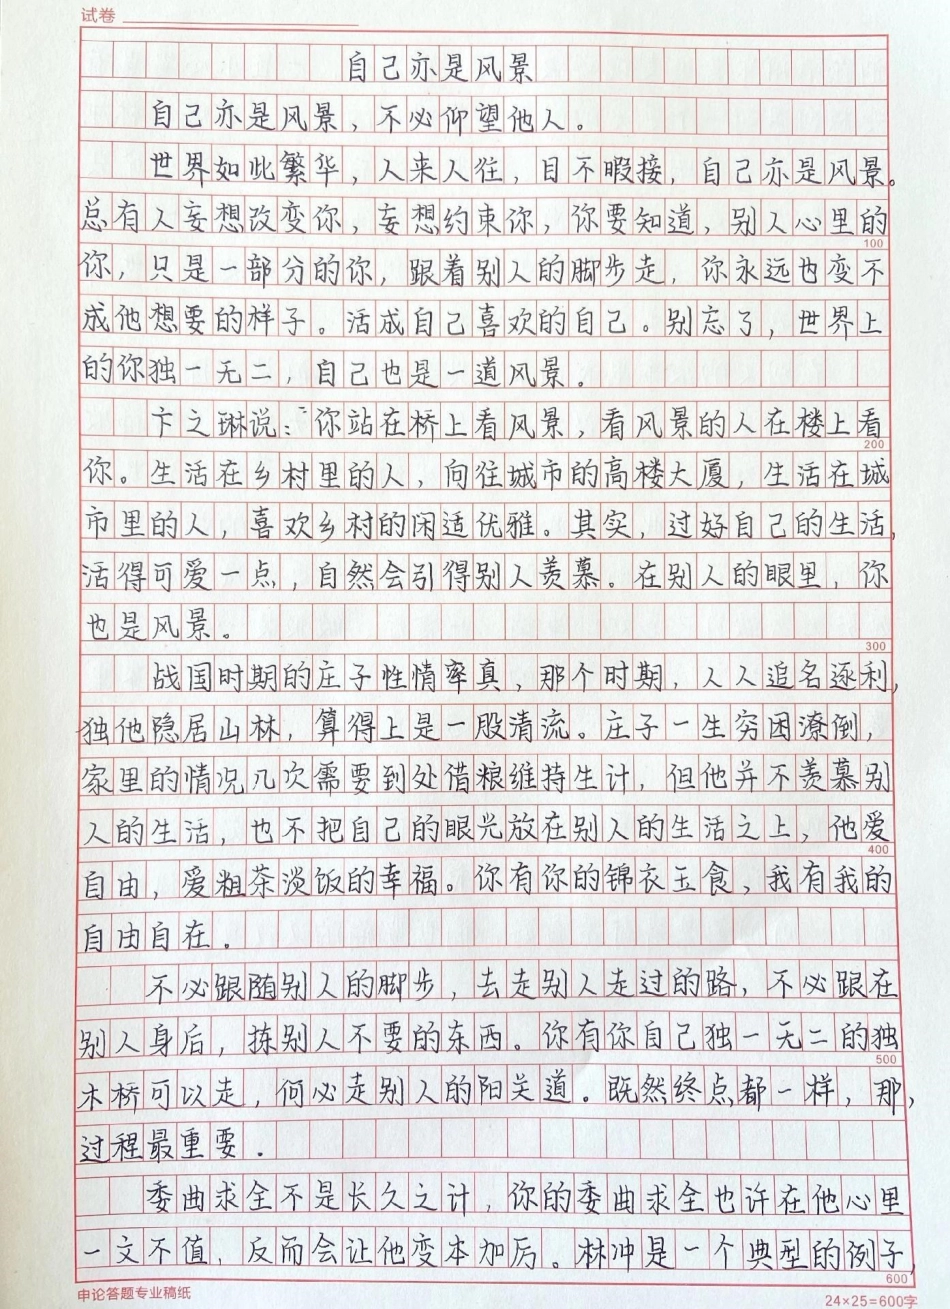 试卷
自己亦是风景
自己亦是风景，不必仰望他人。
世界如此繁华，人来人往，目不暇接，自己亦是风景。
总有人妄想改变你，妄想约束你，你要知道，别人心里的
100
你，只是一部分的你，跟着别人的脚步走，你永远也变不
成他想要的样子。活成自己喜欢的自己。别忘了，世界上
的你独一无二，自己也是一道风景。
卞之琳说：“你站在桥上看风景，看风景的人在楼上看
200
你。生活在乡村里的人，向往城市的高楼大厦，生活在城
市里的人，喜欢乡村的闲适优雅。其实，过好自己的生活，
活得可爱一点，自然会引得别人羡慕。在别人的眼里，你
也是风景。
300
战国时期的庄子性情率真，那个时期，人人追名逐利，
独他隐居山林，算得上是一股清流。庄子一生穷困潦倒，
家里的情况几次需要到处借粮维持生计，但他并不羡慕别
人的生活，也不把自己的眼光放在别人的生活之上，他爱
400
自由，爱粗茶淡饭的幸福。你有你的锦衣玉食，我有我的
自由自在。
不必跟随别人的脚步，去走别人走过的路，不必跟在
别人身后，拣别人不要的东西。你有你自己独一无二的独
500
木桥可以走，何必走别人的阳关道。既然终点都一样，那，
过程最重要．
委曲求全不是长久之计，你的委曲求全也许在他心里
一文不值，反而会让他变本加厉。林冲是一个典型的例子，
600
申论答题专业稿纸
24×25=600字